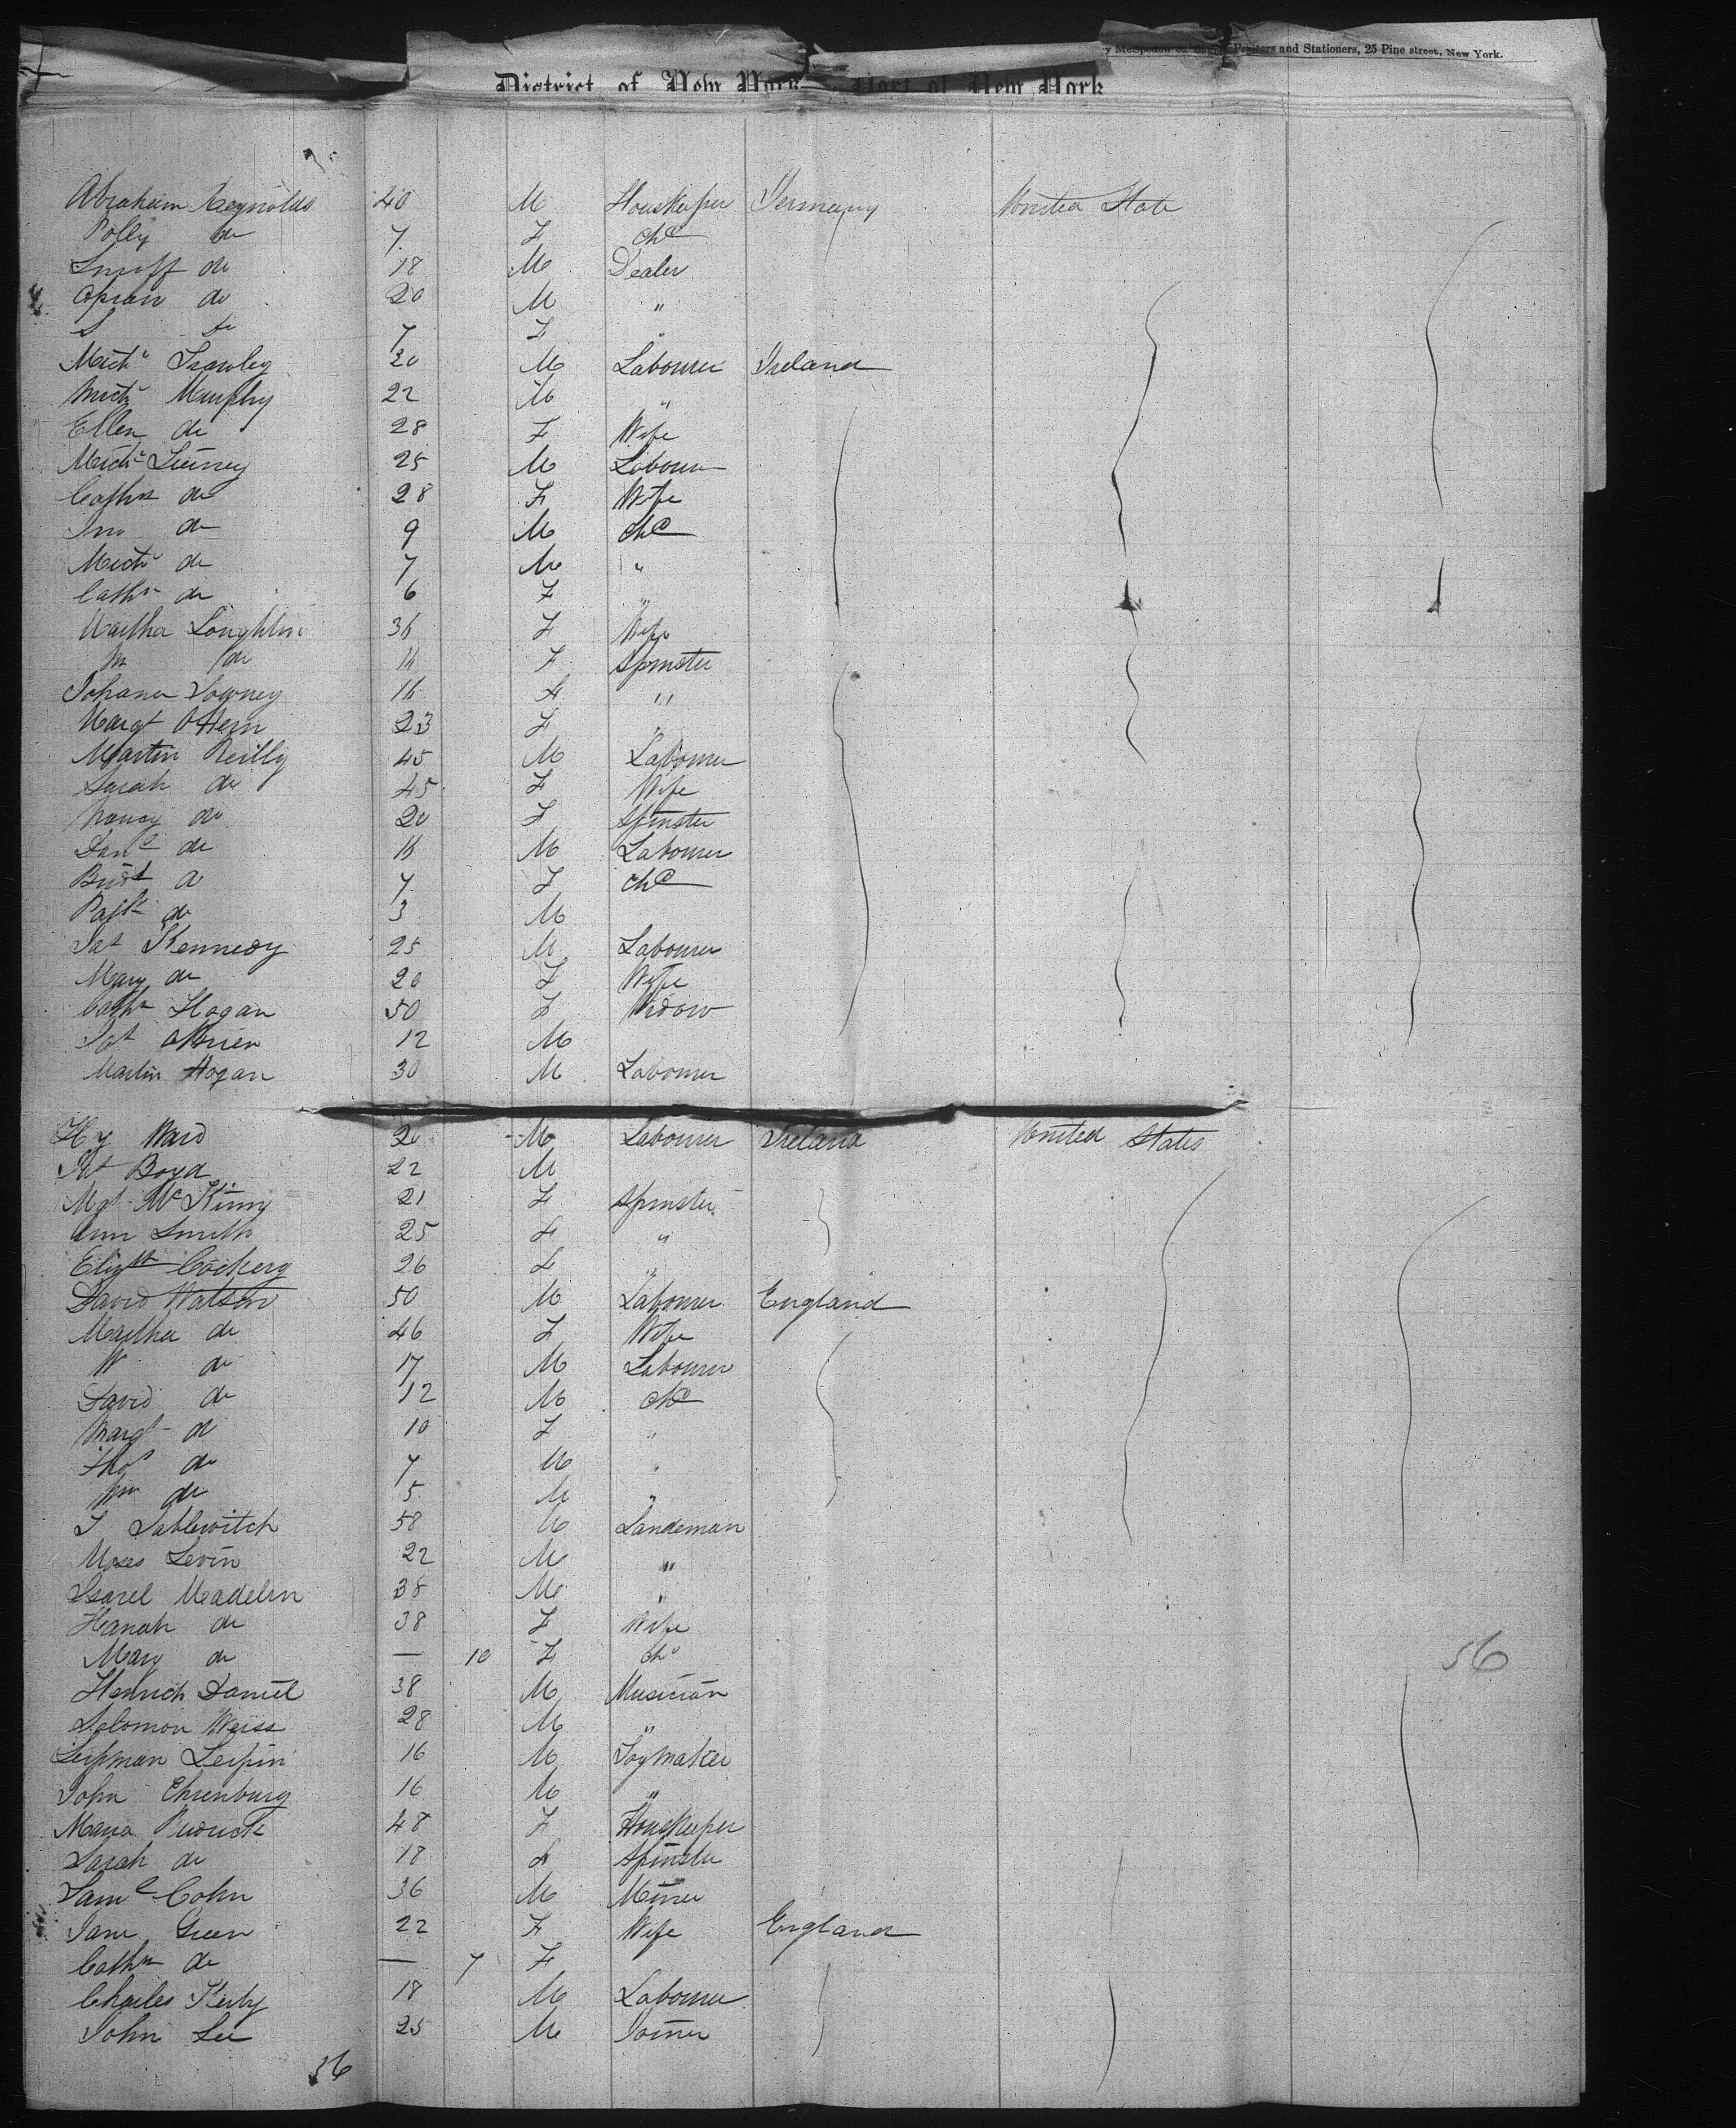 Printers and Stationers, 25 Pine street, New York.
District of New York Port of New York
Abraham Reynolds 40 M Houskeeper Germany United State
Polly do 7 F chd
do 18 M Dealer
do 20 M "
S do 7 F "
Michl Frawley 20 M Labourer Ireland
Michl Murphy 22 M "
Ellen do 28 F Wife
Michl 25 M Labourer
Cathn do 28 F Wife
Jno do 9 M chd
Michl do 7 M "
Cathn do 6 F "
Martha Loughlin 36 F Wife
M do 16 F Spinster
Johana Downey 16 F "
Margt OHern 23 F "
Martin Reilly 45 M Labourer
Sarah do 45 F Wife
Nancy do 20 F Spinster
Danl do 16 M Labourer
Bridt do 7 F chd
Patk do 3 M
Pat Kennedy 25 M Labourer
Mary do 20 F Wife
Cathn Hogan 50 F Widow
Pat OBrien 12 M
Martin Hogan 30 M Labourer
Hy Ward 20 M Labourer Ireland United States
Pat Boyd 22 M
Mgt McKinny 21 F Spinster
Ann Smith 25 F "
Elizth Cockery 26 F "
David Watson 50 M Labourer England
Martha do 46 F Wife
W do 17 M Labourer
David do 12 M chd
Margt do 10 F "
Thos do 7 M "
Wm do 5 M "
58 M Landsman
Moses Levin 22 M "
Isarel Madelin 38 M "
Hanah do 38 F Wife
Mary do — 10 F chd
56
Henrich Daniel 38 M Musician
Solomon Weiss 28 M "
Lipman 16 M Toymaker
John Ehrenburg 16 M "
Maria 48 F Houskeeper
Sarah do 18 F Spinster
Saml Cohn 36 M Miner
Jane Green 22 F Wife England
Cathn do — 7 F
Charles Kirby 18 M Labourer
John Lee 25 M Joiner
56